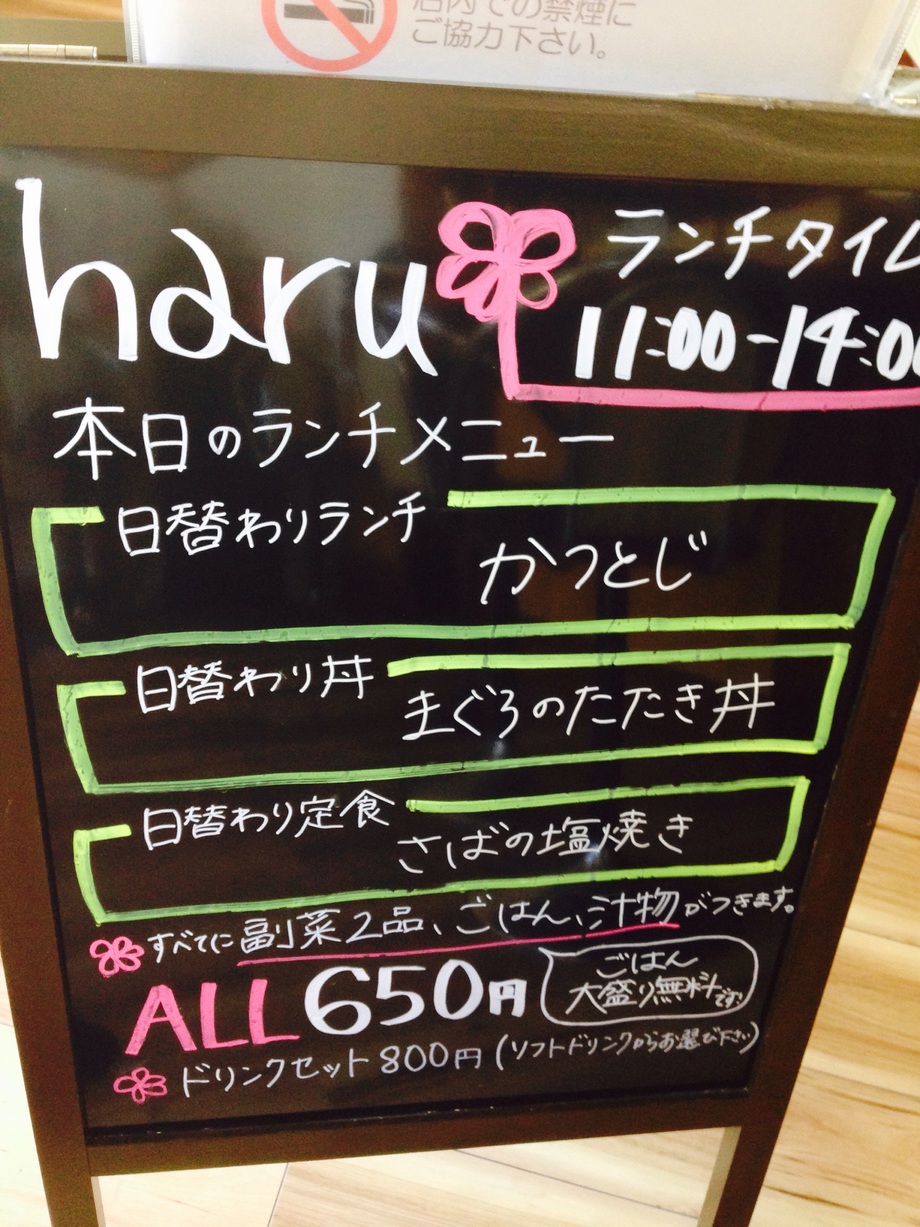 店内での禁煙に
ご協力下さい。
haru
ランチタイム
11:00-14:00
本日のランチメニュー
日替わりランチ
かつとじ
日替わり丼
まぐろのたたき丼
日替わり定食
さばの塩焼き
すべてに副菜2品、ごはん、汁物がつきます。
ALL650円
ごはん
大盛り無料です
ドリンクセット800円(ソフトドリンクからお選び下さい)